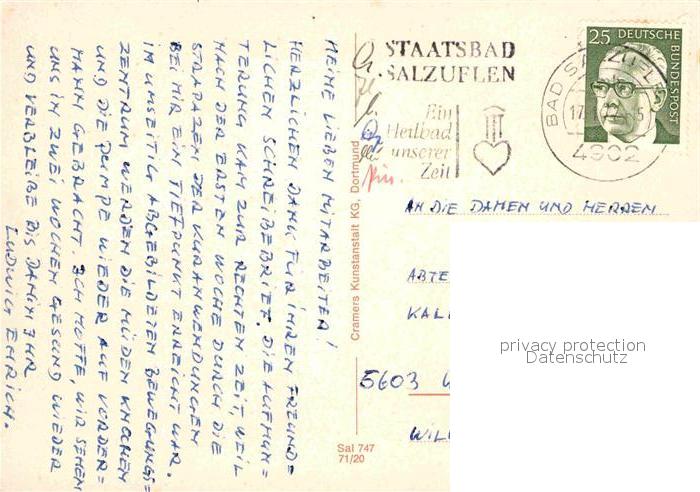 MEINE LIEBEN MITARBEITER!
HERZLICHEN DANK FÜR IHREN FREUND=
LICHEN SCHREIBEBRIEF. DIE AUFMUN=
TERUNG KAM ZUR RECHTEN ZEIT, WEIL
NACH DER ERSTEN WOCHE DURCH DIE
STRAPAZEN DER KURANWENDUNGEN
BEI MIR EIN TIEFPUNKT ERREICHT WAR.
IM UMSEITIG ABGEBILDETEN BEWEGUNGS=
ZENTRUM WERDEN DIE MÜDEN KNOCHEN
UND DIE PUMPE WIEDER AUF VORDER=
MANN GEBRACHT. ICH HOFFE, WIR SEHEN
UNS IN ZWEI WOCHEN GESUND WIEDER
UND VERBLEIBE BIS DAHIN IHR
LUDWIG EHRICH.
Cramers Kunstanstalt KG, Dortmund
Sal 747
71/20
STAATSBAD
SALZUFLEN
Ein
Heilbad
unserer
Zeit
BAD SALZUFLEN
17.
4902
25 DEUTSCHE
BUNDESPOST
AN DIE DAMEN UND HERREN
ABTE
KAL
5603 W
WIL
privacy protection
Datenschutz